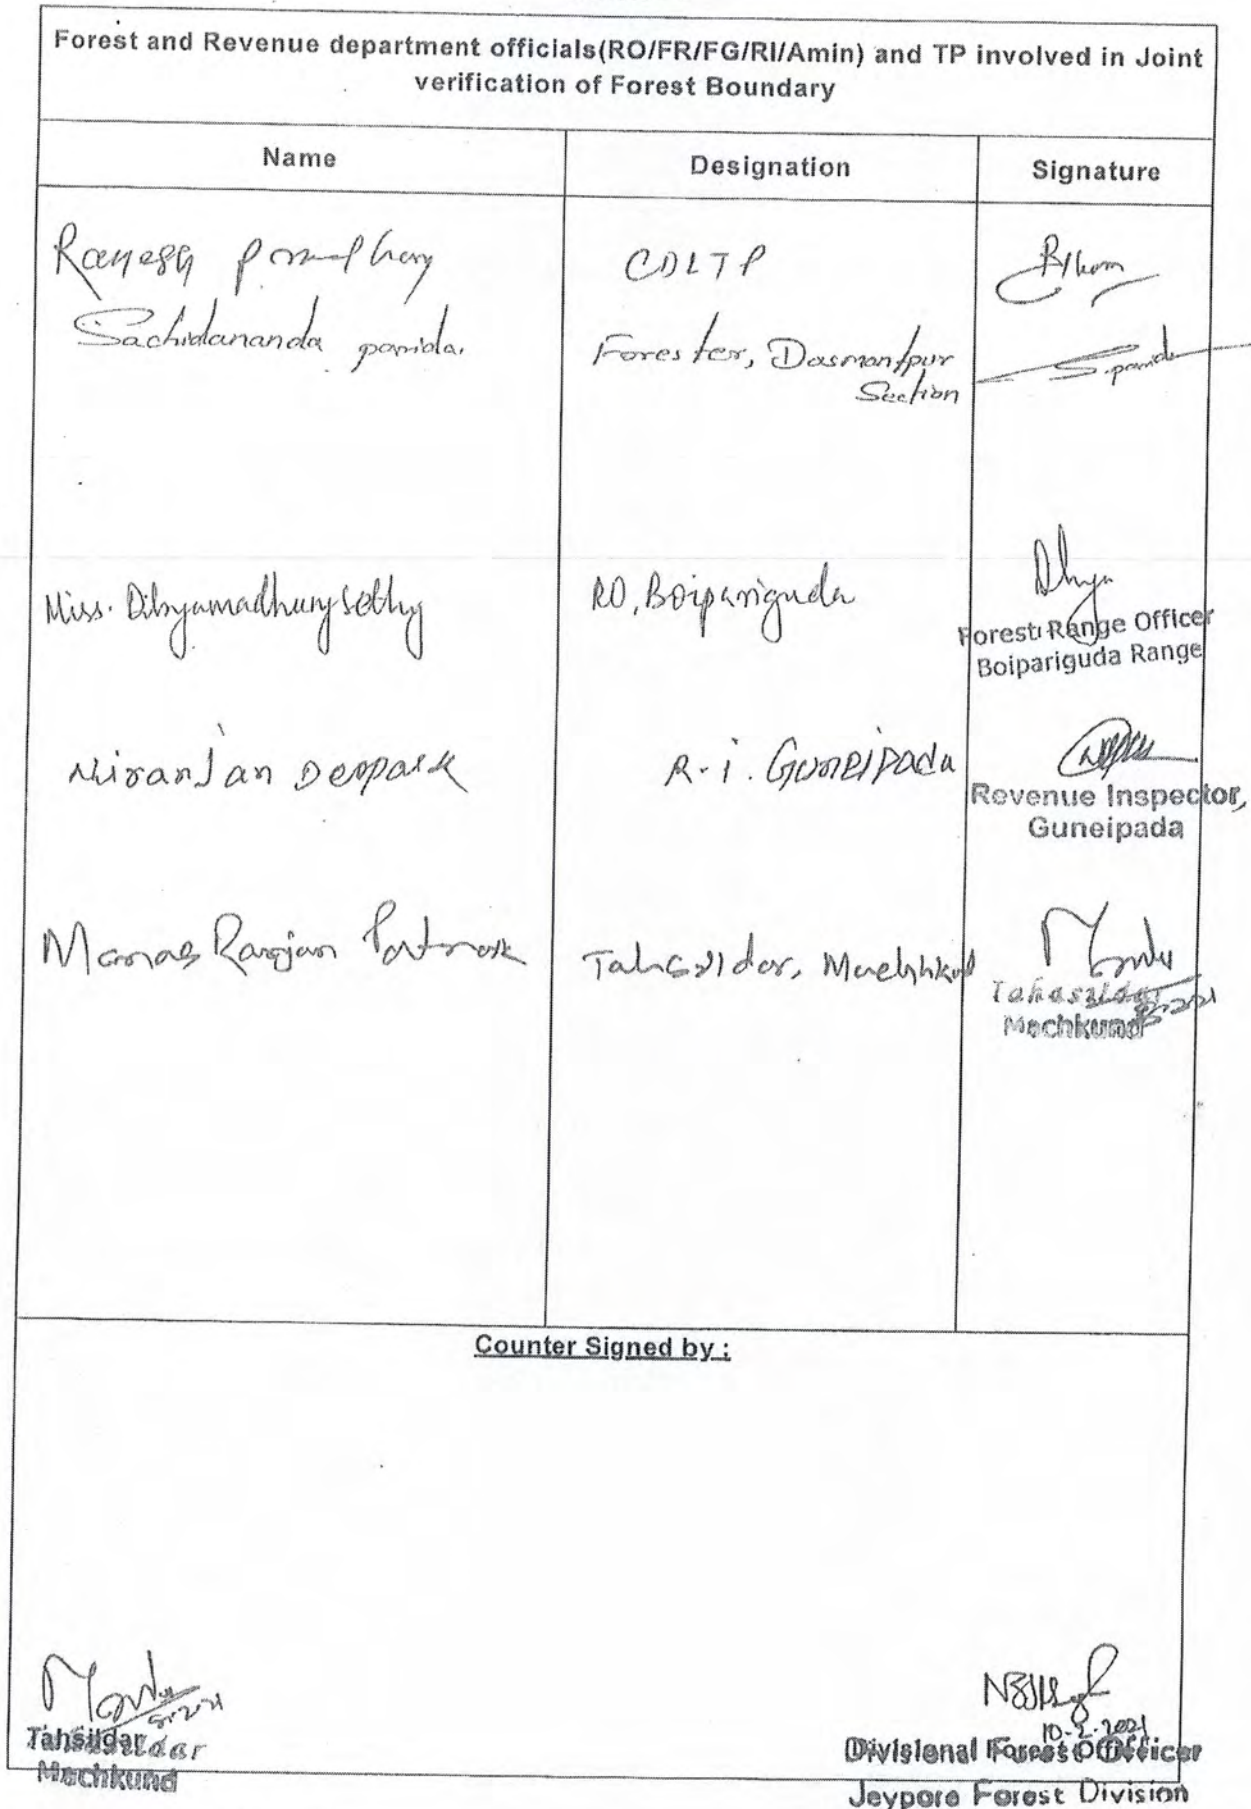 Forest and Revenue department officials(RO/FR/FG/RI/Amin) and TP involved in Joint
verification of Forest Boundary
Name Designation Signature
CDLTP
Sachidananda parida. Forester, Dasmantpur
Section S.parida
Miss. Dibyamadhury Sethy RO, Boipariguda
Forest Range Officer
Boipariguda Range
Niranjan R.i. Guneipada
Revenue Inspector,
Guneipada
Manas Ranjan Patnaik Tahsildar, Machhkund
Tahasildar
Machkund
Counter Signed by :
10-2-2021
Tahsildar Divisional Forest Officer
Machkund
Jeypore Forest Division